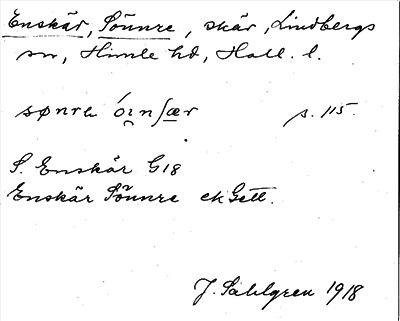 Enskär, Sönnre, skär, Lindbergs
sn, Himle hd, Hall. l.
sønrɐ óɪnʃær s. 115.
S. Enskär G18
Enskär Sönnre ek Gett.
J. Sahlgren 1918